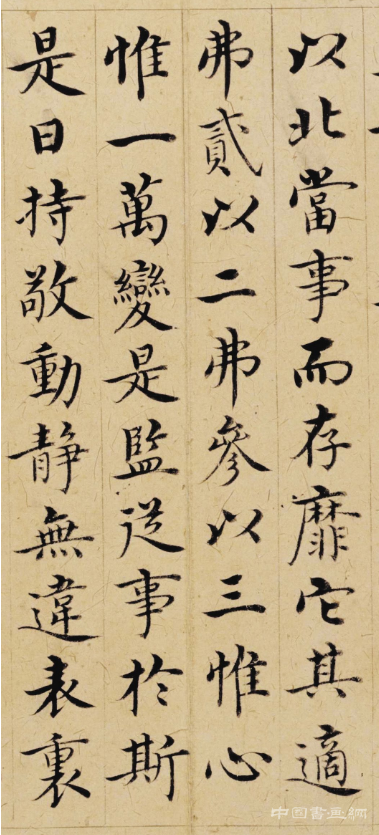 以北當事而存靡它其適
弗貳以二弗參以三惟心
惟一萬變是監從事於斯
是日持敬動静無違表裏
中国書画網